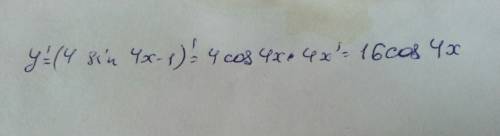 y'=(4 sin 4x-1)'=4cos4x•4x'=16cos 4x